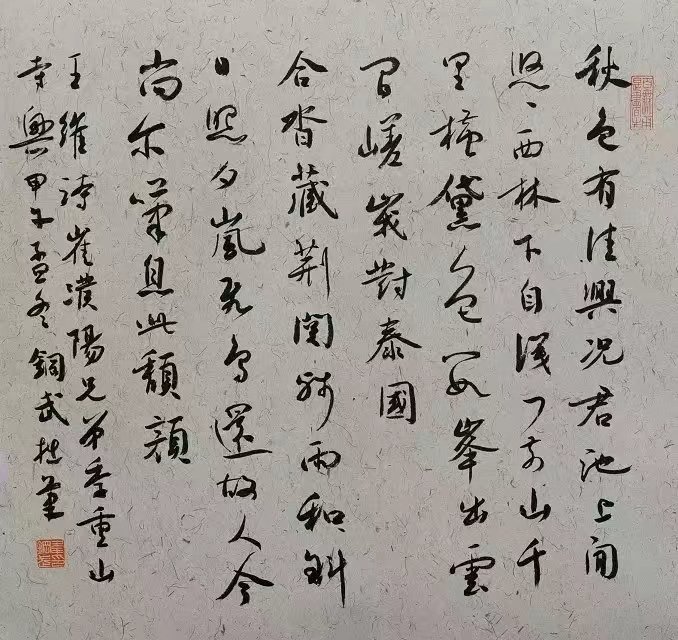 秋色有佳興况君池上闲
悠悠西林下自識门前山千
里橫黛色數峯出雲
间嵯峨對秦國
合沓藏荆關残雨和斜
日照夕嵐飛鳥還故人今
尚尔嘆息此頹顏
王維詩崔濮陽兄弟季重山
寺興甲午孟冬銅武